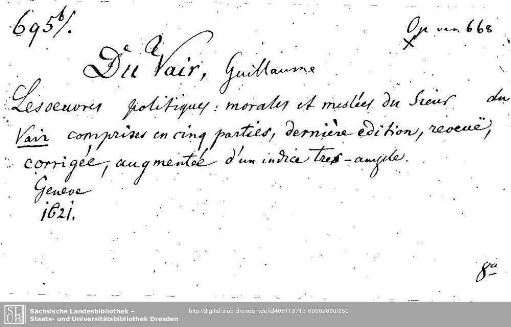 695b/.
Op ven 668
Du Vair, Guillaume
Les oeuvres politiques: morales et meslées du Sieur du
Vair comprises en cinq parties, dernière edition, reveuë,
corrigée, augmentée d'un indice tres-ample.
Geneve
1621.
8°
Sächsische Landesbibliothek –
Staats- und Universitätsbibliothek Dresden